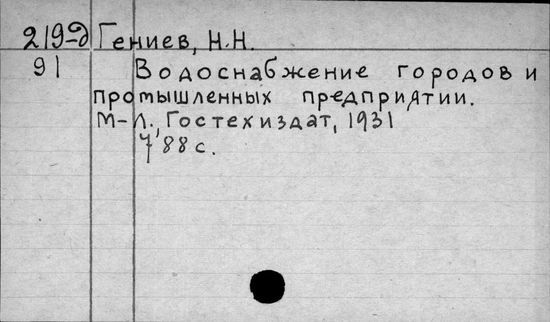 219-д Гениев, Н.Н.
91 Водоснабжение городов и
промышленных предприятии.
М-Л., Гостехиздат, 1931
788 с.